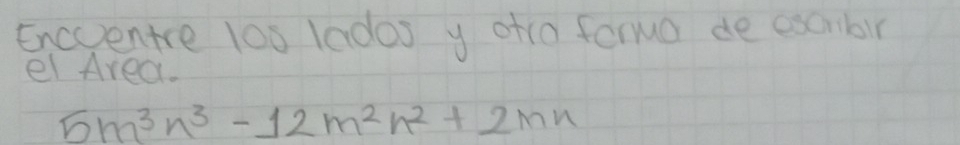 Encuentre los lados y otra forma de escribir
el Area.
5m³n³ - 12m²n² + 2mn